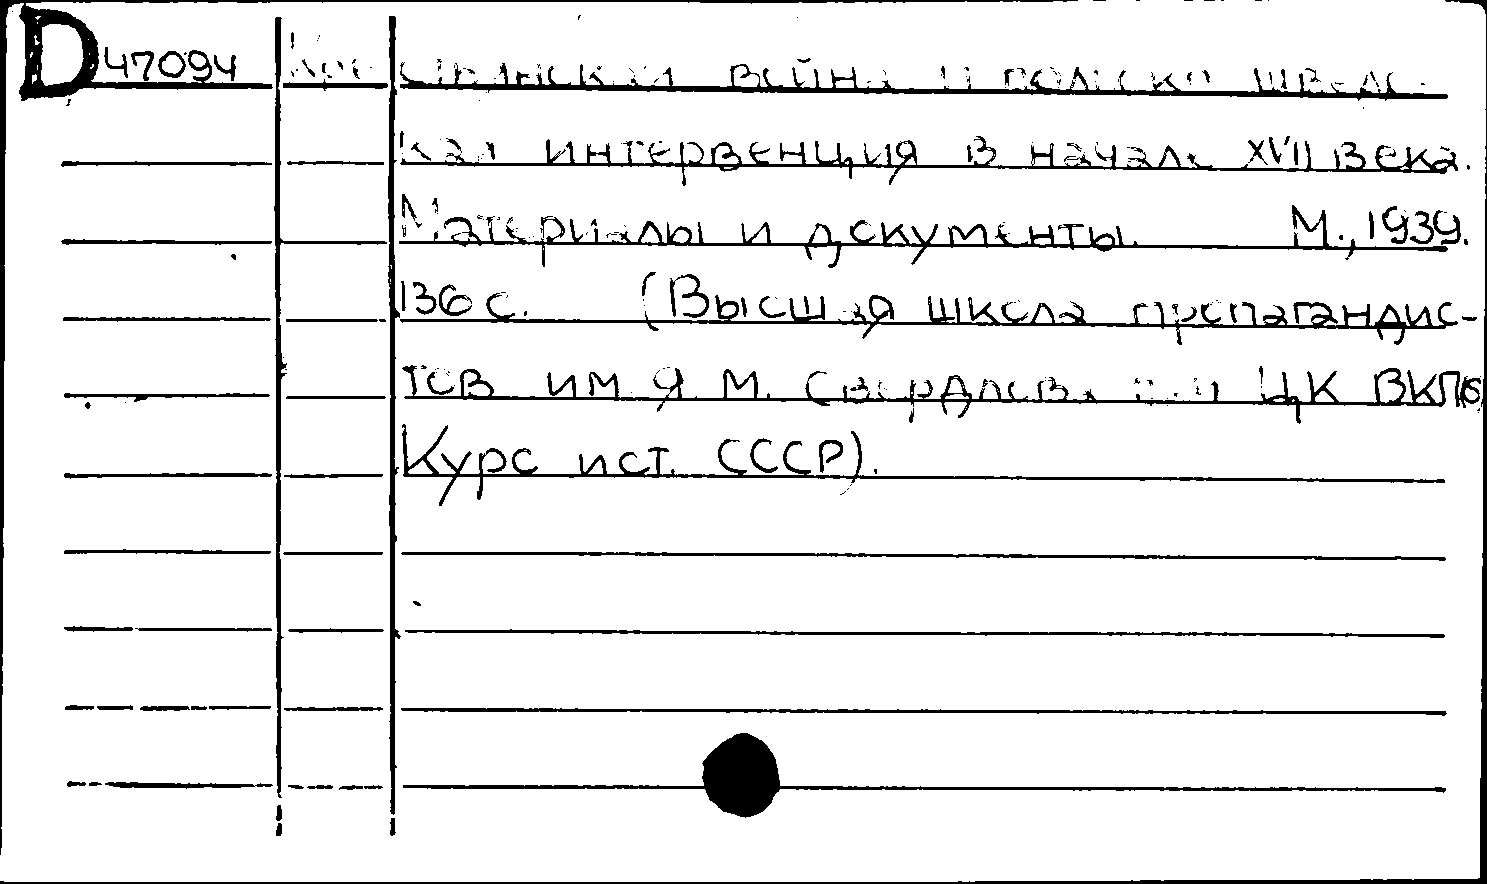 D 47094 Крестьянская война и польско-шведс-
кая интервенция в начале XVII века.
Материалы и документы. М., 1939.
136 с. (Высшая школа пропагандис-
тов им. Я. М. Свердлова при ЦК ВКП(б)
Курс ист. СССР).